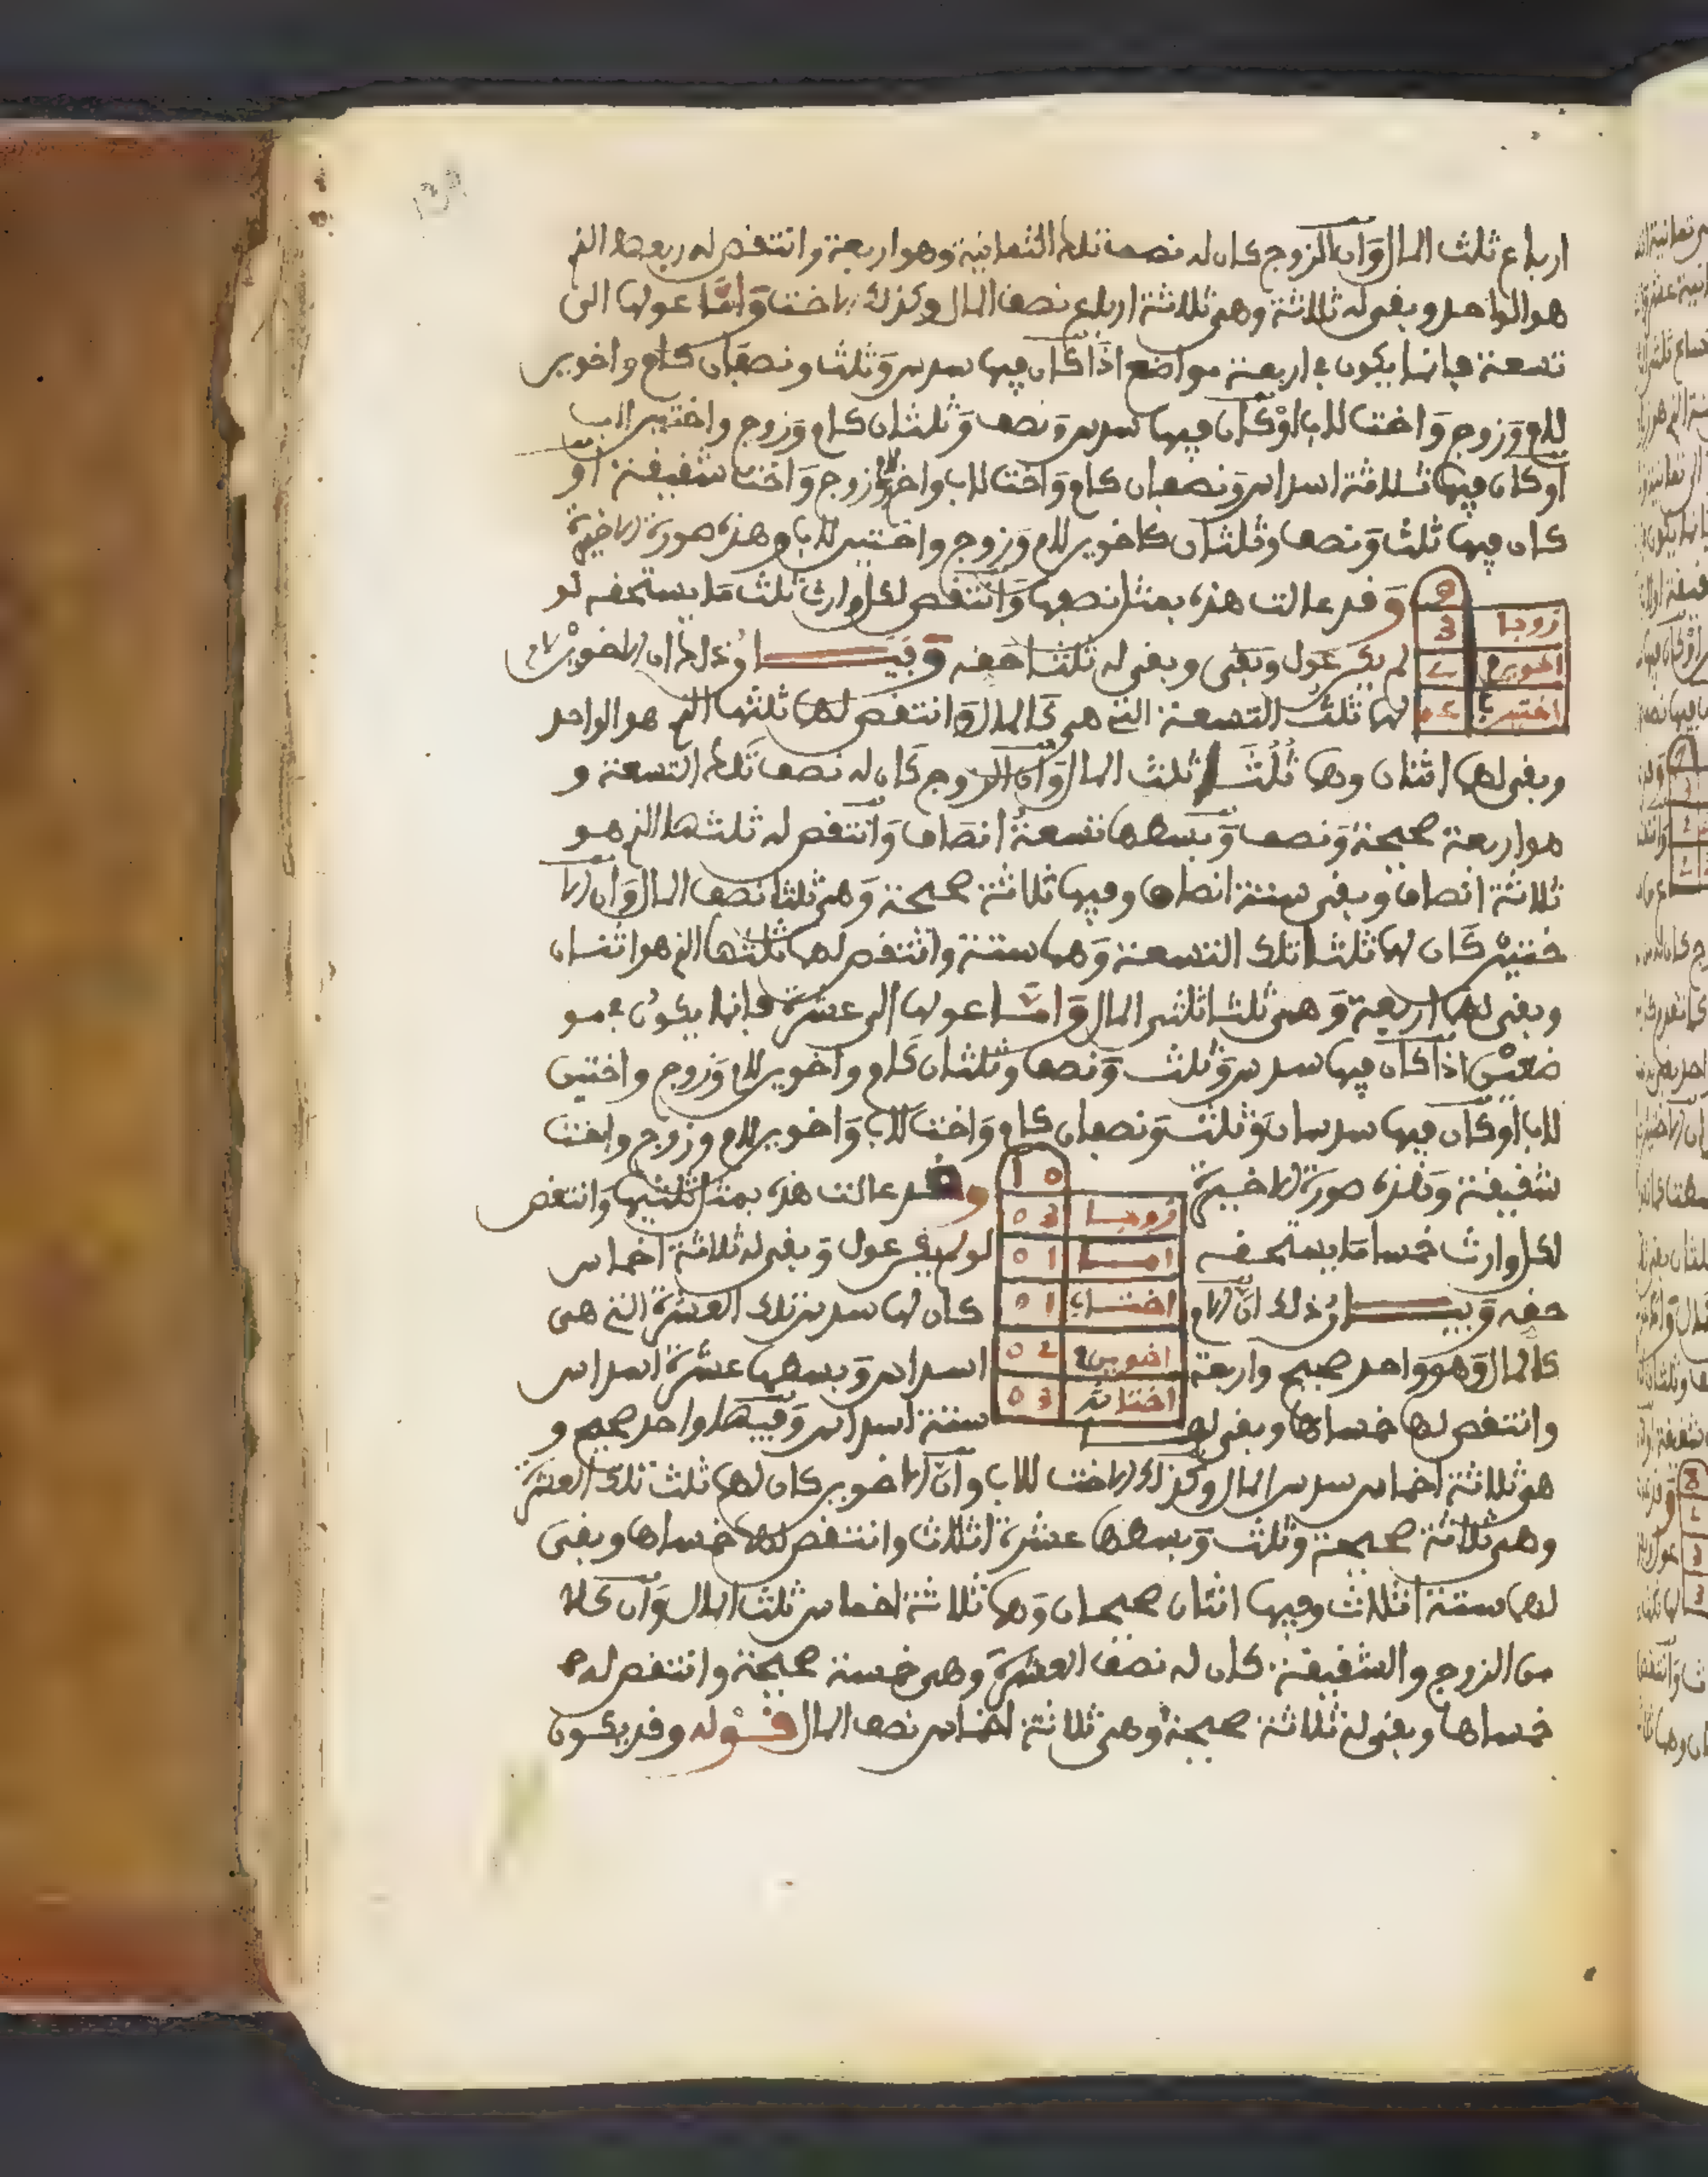 ارباع ثلث المال وان الزوج كان له نصف تلك الثمانية وهو اربعة وانتقص له ربعها الذي
هو الواحد وبقي له ثلاثة وهي ثلاثة ارباع نصف المال وكذلك الاخت واما عولها الى
تسعة فإنما يكون في اربعة مواضع اذا كان فيها سدس وثلث ونصفان كأم واخوين
للام وزوج واخت للاب او كان فيها سدس ونصف وثلثان كأم وزوج واختين لاب
او كان فيها ثلاثة اسداس ونصفان كأم واخت للاب واخ للام وزوج واخت شقيقة او
كان فيها ثلث ونصف وثلثان كاخوين للام وزوج واختين للاب وهذه صورة الاخيرة
وقد عالت هذه بمثل نصفها وانتقص لكل وارث ثلث ما يستحقه لو
لم يكن عول وبقي له ثلثا حقه وبيان ذلك ان الاخوين كان
لهما ثلث التسعة التي هي كالمال وانتقص لهما ثلثها الذي هو الواحد
وبقي لهما اثنان وهما ثلثا ثلث المال وان الزوج كان له نصف تلك التسعة و
هو اربعة صحيحة ونصف وبسطها تسعة انصاف وانتقص له ثلثها الذي هو
ثلاثة انصاف وبقي ستة انصاف وفيها ثلاثة صحيحة وهي ثلثا نصف المال وان الا
ختين كان لهما ثلثا تلك التسعة وهما ستة وانتقص لهما ثلثها الذي هو اثنان
وبقي لهما اربعة وهي ثلثا ثلثي المال واما عولها الى عشرة فإنما يكون في مو
ضعين اذا كان فيها سدس وثلث ونصف وثلثان كأم واخوين للام وزوج واختين
للاب او كان فيها سدسان وثلث ونصفان كأم واخت للاب واخوين للام وزوج واخت
شقيقة وهذه صورة الاخيرة وقد عالت هذه بمثل ثلثيها وانتقص
لكل وارث خمسا ما يستحقه لو لم يقع عول وبقي له ثلاثة اخماس
حقه وبيان ذلك ان الام كان لها سدس تلك العشرة التي هي
كالمال وهو واحد صحيح واربعة اسداس وبسطها عشرة اسداس
وانتقص لها خمساها وبقي لها ستة اسداس وفيها واحد صحيح و
هو ثلاثة اخماس سدس المال وكذلك الاخت للاب وان الاخوين كان لهما ثلث تلك العشرة
وهي ثلاثة صحيحة وثلث وبسطها عشرة اثلاث وانتقص لهما خمساها وبقي
لهما ستة اثلاث وفيها اثنان صحيحان وهما ثلاثة اخماس ثلث المال وان كلا
من الزوج والشقيقة كان له نصف العشرة وهي خمسة صحيحة وانتقص له
خمساها وبقي له ثلاثة صحيحة وهي ثلاثة اخماس نصف المال قوله وقد يكون